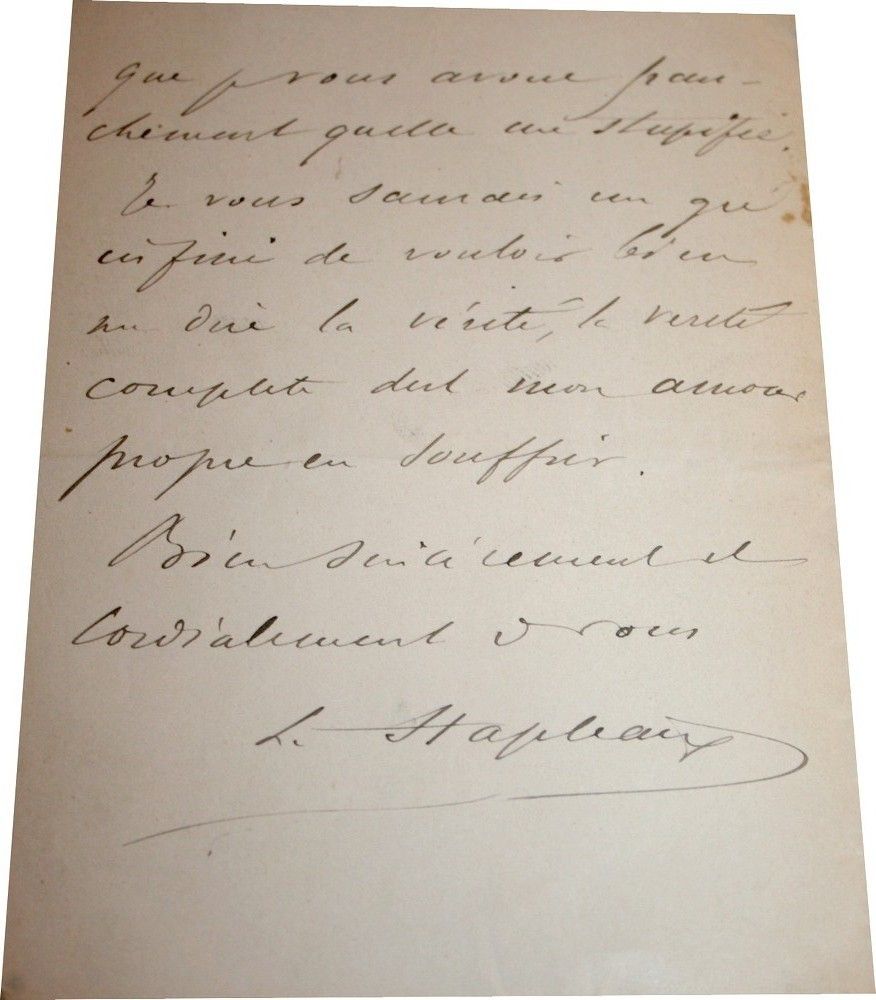 que je vous avoue fran-
chement quelle me stupéfie.
Je vous saurais un gré
infini de vouloir bien
me dire la vérité, la verité
complete dut mon amour
propre en souffrir.
Bien sincèrement et
Cordialement à vous
L. Stapleaux